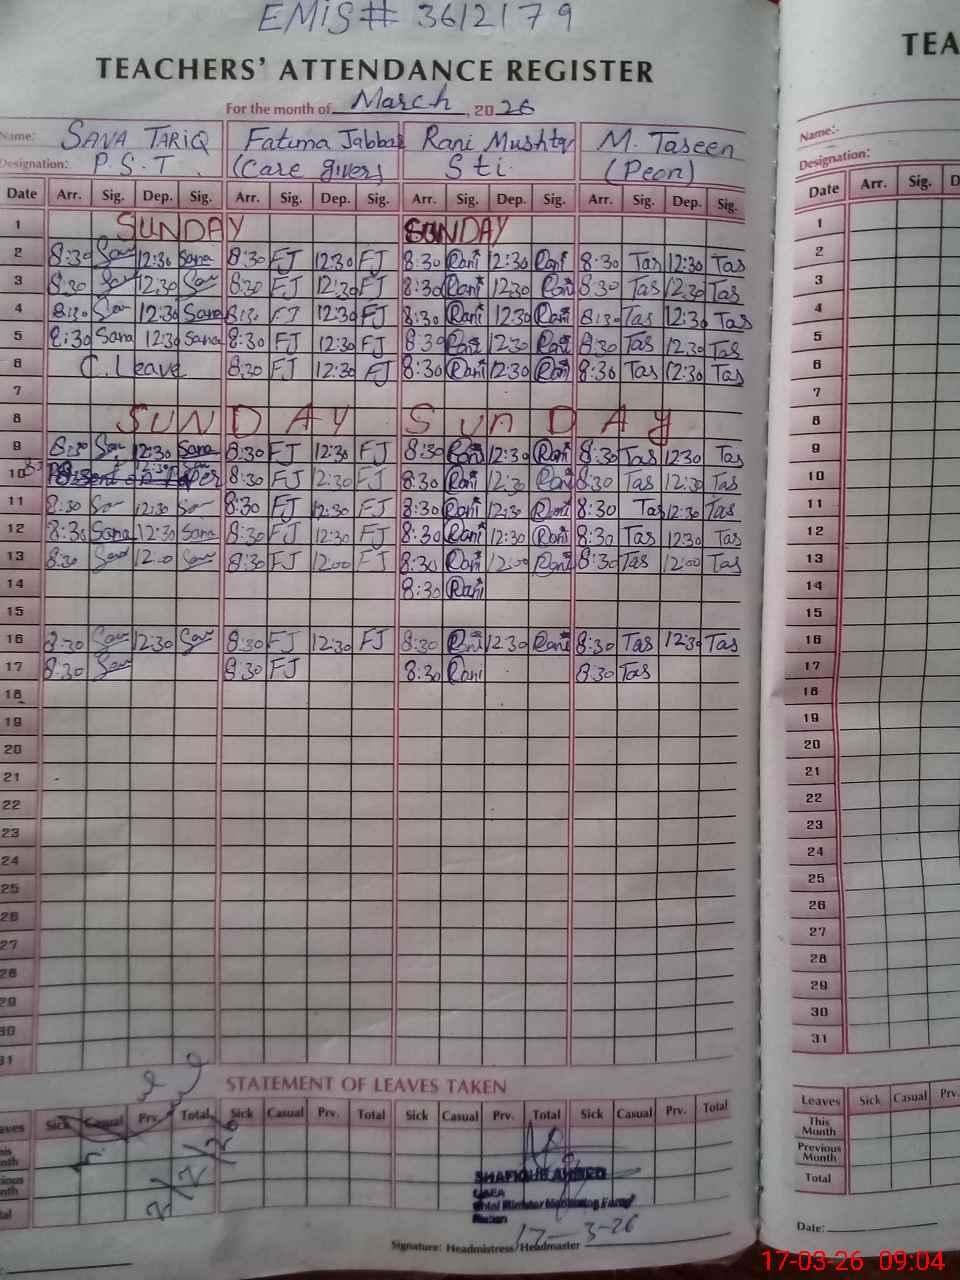 EMIS# 3612179
TEACHERS' ATTENDANCE REGISTER
For the month of March, 2026
Name: SANA TARIQ Fatima Jabbar Rani Mushtq M. Taseen
Designation: P.S.T. (Care giver) Sti. (Peon)
Date Arr. Sig. Dep. Sig. Arr. Sig. Dep. Sig. Arr. Sig. Dep. Sig. Arr. Sig. Dep. Sig.
1 SUNDAY SUNDAY
2 8:30 San 12:30 Sana 8:30 FJ 12:30 FJ 8:30 Rani 12:30 Rani 8:30 Tas 12:30 Tas
3 8:30 San 12:30 San 8:30 FJ 12:30 FJ 8:30 Rani 12:30 Rani 8:30 Tas 12:30 Tas
4 8:30 San 12:30 Sana 8:30 FJ 12:30 FJ 8:30 Rani 12:30 Rani 8:30 Tas 12:30 Tas
5 8:30 Sana 12:30 Sana 8:30 FJ 12:30 FJ 8:30 Rani 12:30 Rani 8:30 Tas 12:30 Tas
6 C. Leave 8:30 FJ 12:30 FJ 8:30 Rani 12:30 Rani 8:30 Tas 12:30 Tas
7
8 SUNDAY SUNDAY
9 8:30 San 12:30 Sana 8:30 FJ 12:30 FJ 8:30 Rani 12:30 Rani 8:30 Tas 12:30 Tas
10 8:30 FJ 12:30 FJ 8:30 Rani 12:30 Rani 8:30 Tas 12:30 Tas
11 8:30 San 12:30 San 8:30 FJ 12:30 FJ 8:30 Rani 12:30 Rani 8:30 Tas 12:30 Tas
12 8:30 Sana 12:30 Sana 8:30 FJ 12:30 FJ 8:30 Rani 12:30 Rani 8:30 Tas 12:30 Tas
13 8:30 Sana 12:00 San 8:30 FJ 12:00 FJ 8:30 Rani 12:00 Rani 8:30 Tas 12:00 Tas
14 8:30 Rani
15
16 8:30 San 12:30 San 8:30 FJ 12:30 FJ 8:30 Rani 12:30 Rani 8:30 Tas 12:30 Tas
17 8:30 San 8:30 FJ 8:30 Rani 8:30 Tas
18
19
20
21
22
23
24
25
26
27
28
29
30
31
STATEMENT OF LEAVES TAKEN
Sick Casual Prv. Total Sick Casual Prv. Total Sick Casual Prv. Total Sick Casual Prv. Total
SHAFIQUE AHMED
17-3-26
Signature: Headmistress/Headmaster
TEA
Name:
Designation:
Date Arr. Sig. D
1
2
3
4
5
6
7
8
9
10
11
12
13
14
15
16
17
18
19
20
21
22
23
24
25
26
27
28
29
30
31
Leaves Sick Casual Prv.
This Month
Previous Month
Total
Date:
17-03-26 09:04